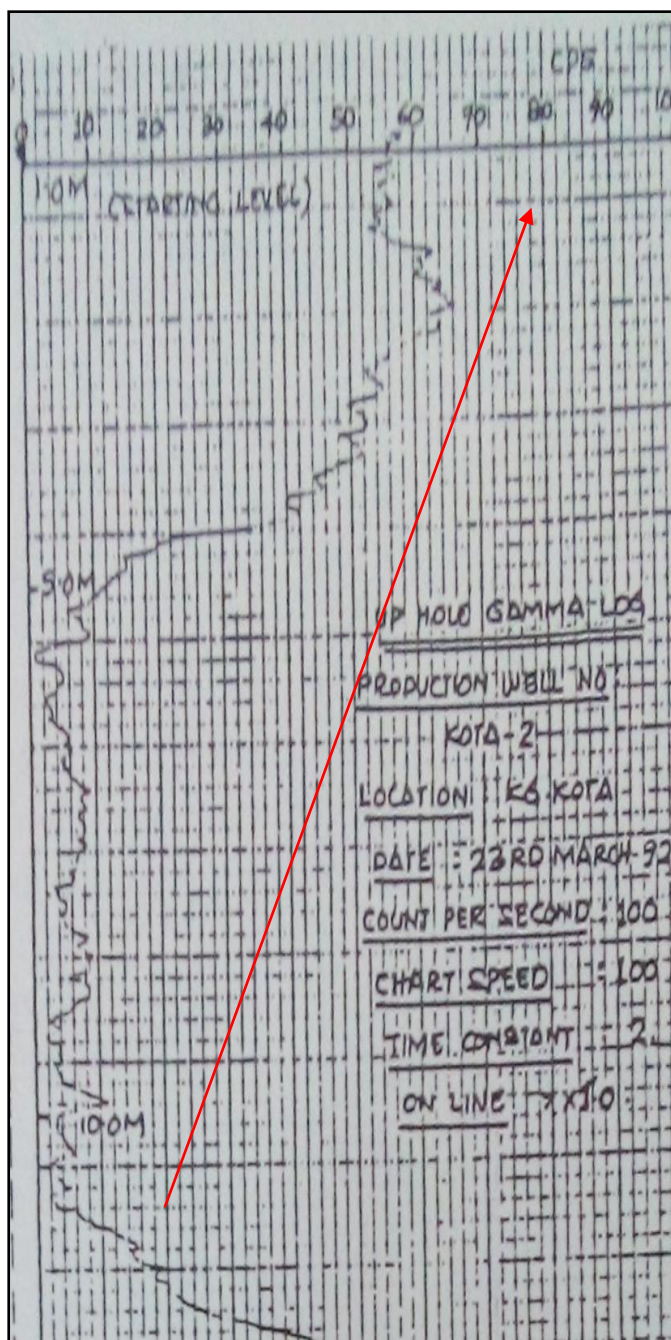 CPS
0 10 20 30 40 50 60 70 80 90 10
1.0M (STARTING LEVEL)
5.0M
UP HOLE GAMMA-LOG
PRODUCTION WELL NO:
KOTA-2
LOCATION : KG KOTA
DATE : 23RD MARCH-92
COUNT PER SECOND : 100
CHART SPEED : 100
TIME CONSTANT : 2
ON LINE → X10
10.0M